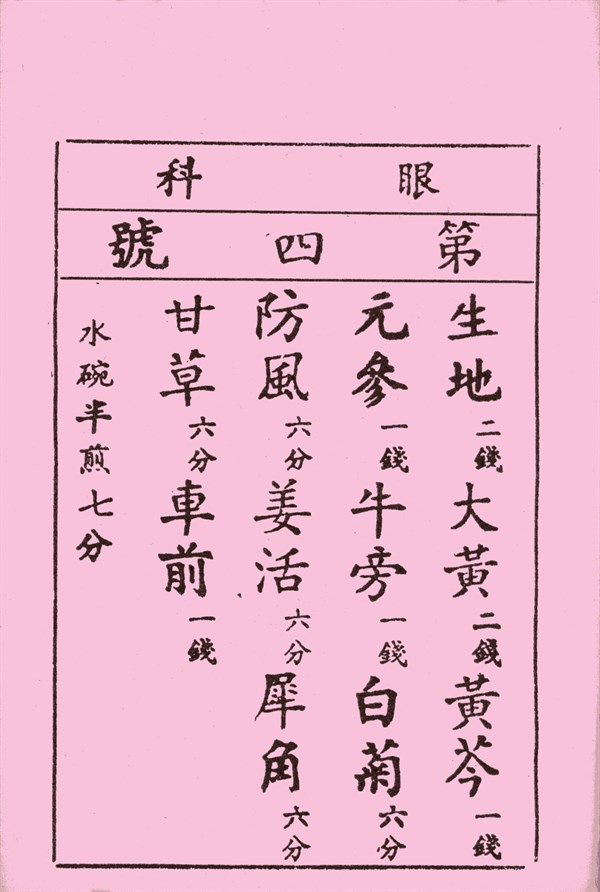 眼科
第四號
生地二錢大黃二錢黃芩一錢
元參一錢牛旁一錢白菊六分
防風六分姜活六分犀角六分
甘草六分車前一錢
水碗半煎七分